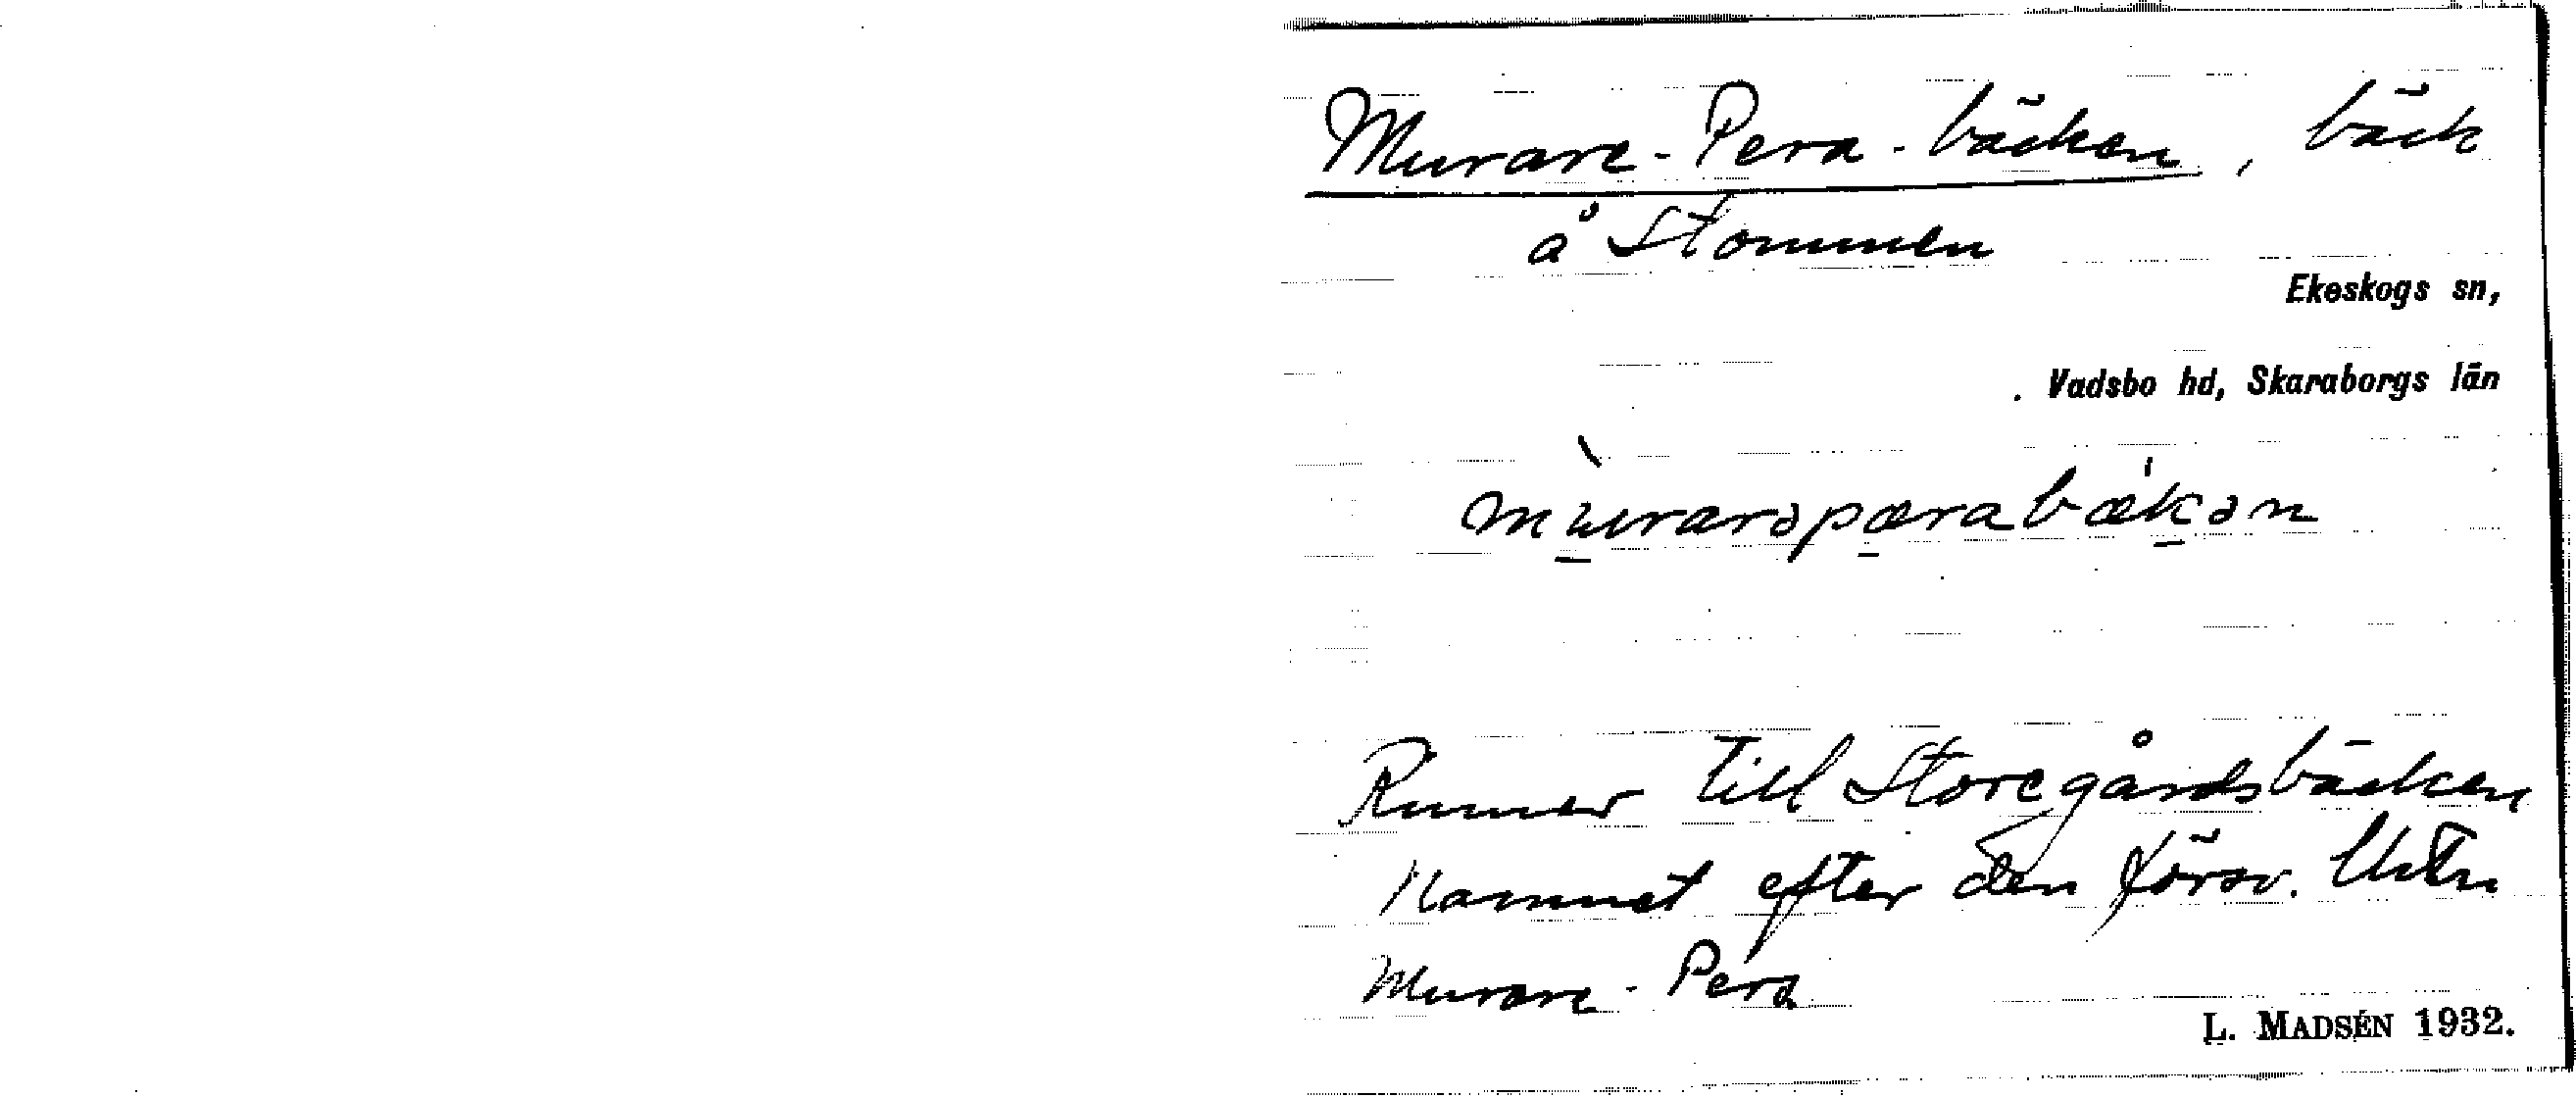 Murare-Pera-bäcken, bäck
å Stommen
Ekeskogs sn,
Vadsbo hd, Skaraborgs län
mùrarəpærabækən
Rinner till Storegårdsbäcken
Namnet efter den försv.
Murare-Pera
L. MADSÉN 1932.